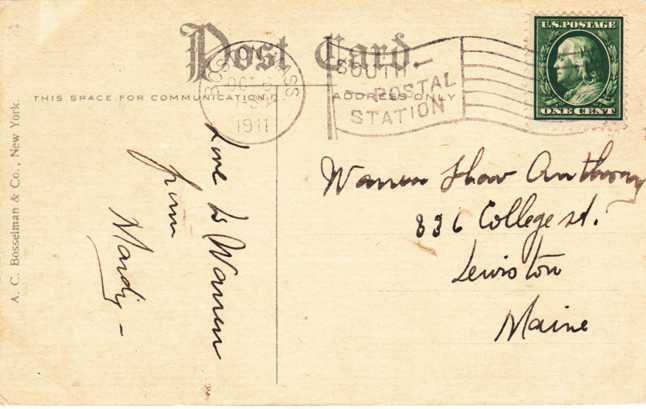 Post Card.
THIS SPACE FOR COMMUNICATION
ADDRESS ONLY
BOSTON
OCT
1911
SOUTH
POSTAL
STATION
U.S. POSTAGE
ONE CENT
A. C. Bosselman & Co., New York.
Love to Warren
from
Mardy -
Warren Shaw Anthony
836 College st.
Lewiston
Maine